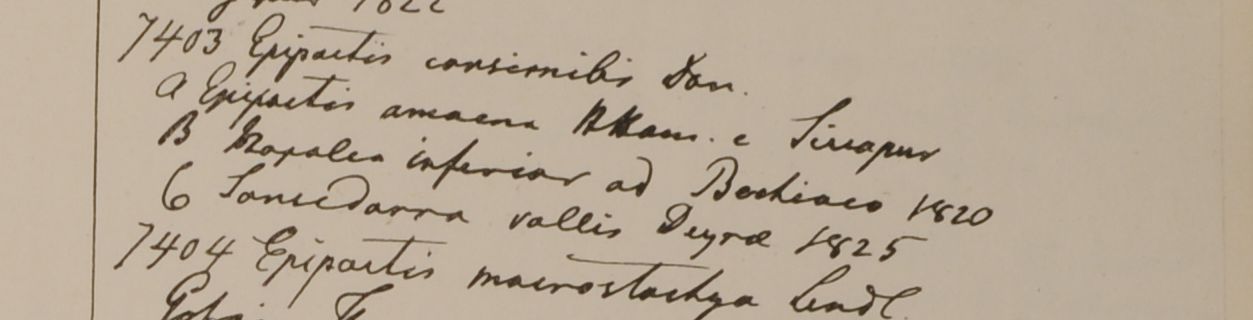 1822
7403 Epipactis consimilis Don.
a Epipactis amaena Ham. e Sirrapur
B Napalea inferior ad Bechiaco 1820
6 Sansedarra vallis Deyræ 1825
7404 Epipactis macrostachya Lindl.